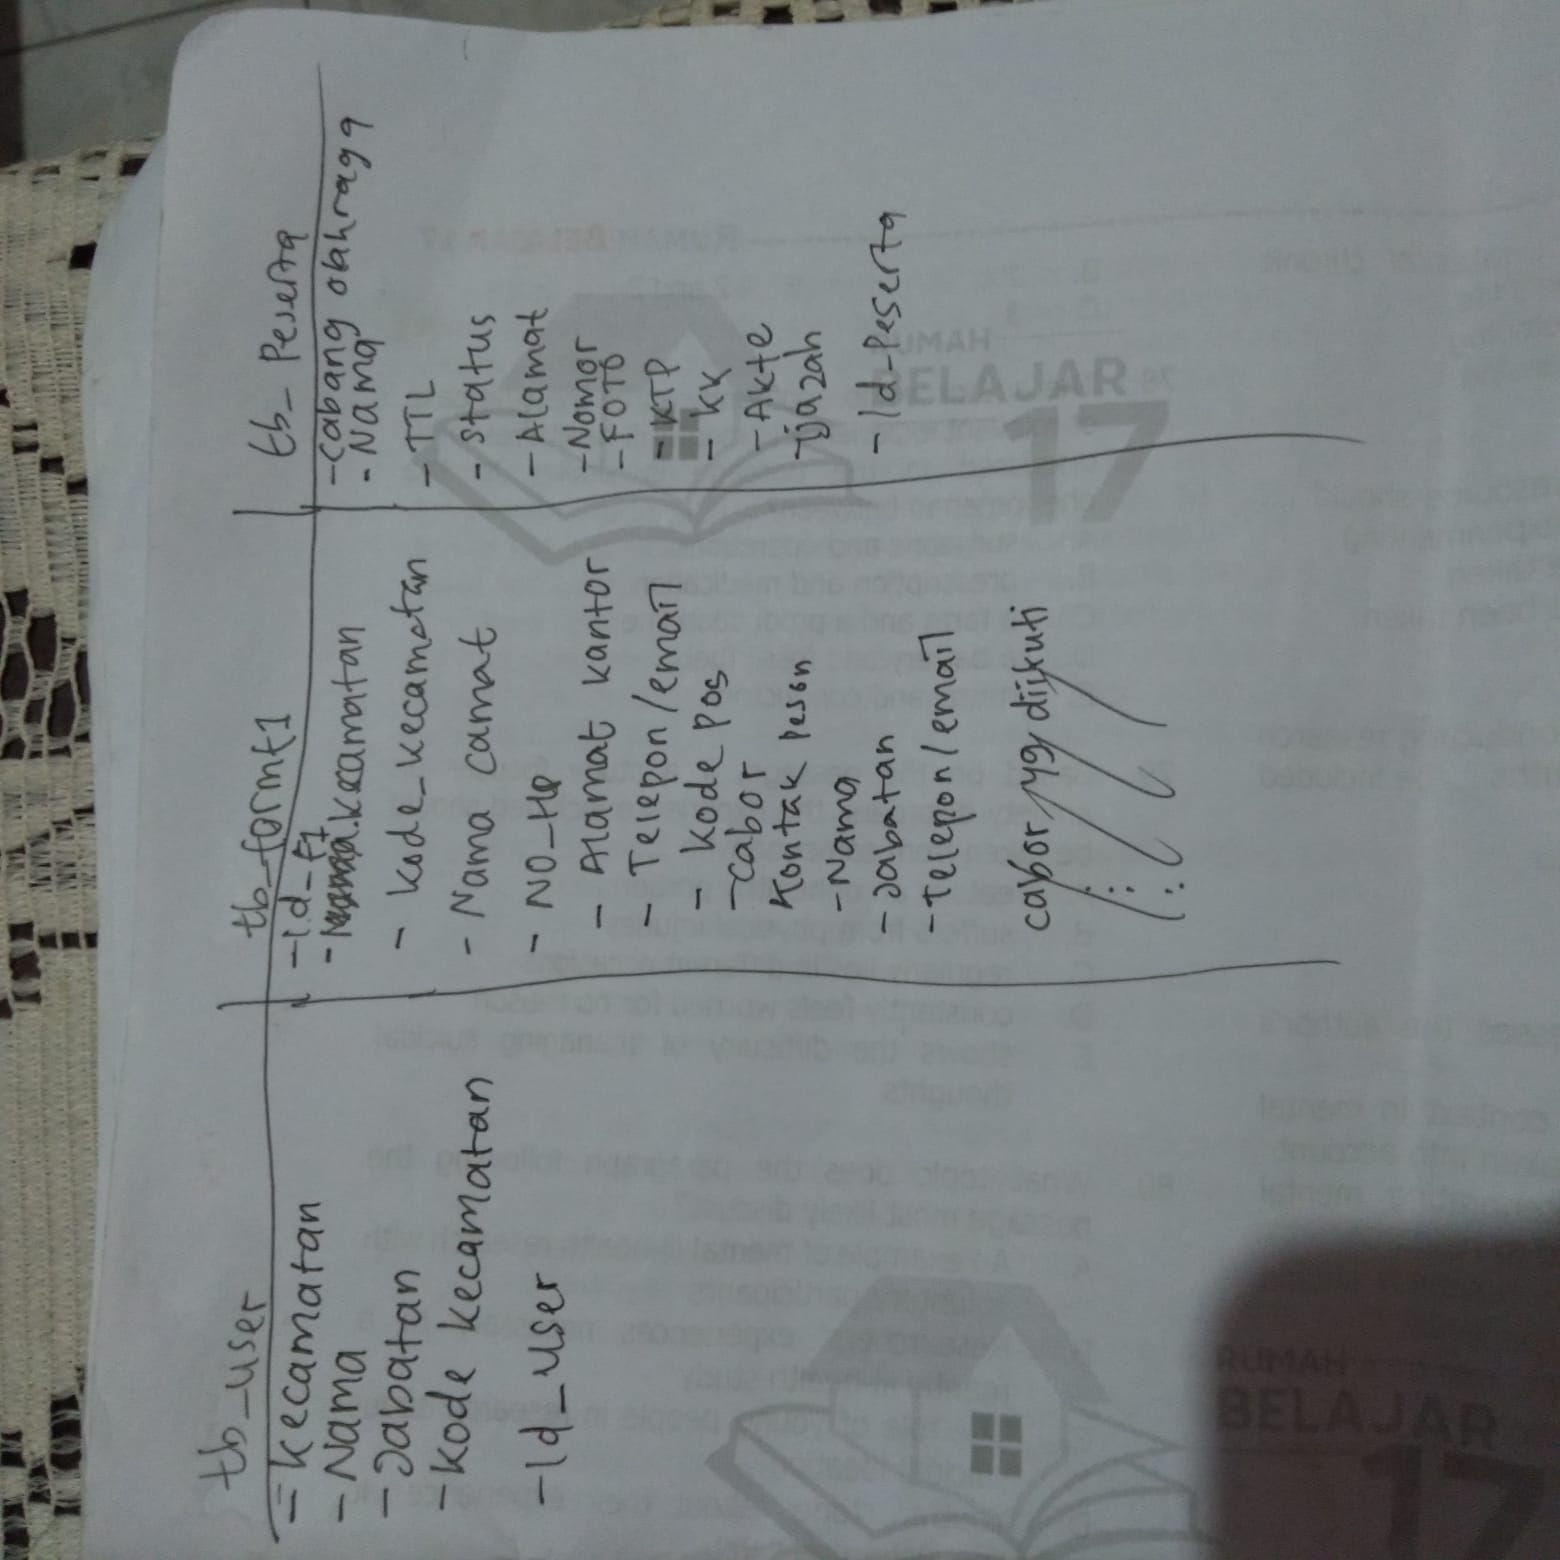 tb_user
= Kecamatan
- Nama
- Jabatan
- Kode kecamatan
- Id_user
tb_formf1
- Id_f1
- kecamatan
- kode_kecamatan
- Nama camat
- NO_HP
- Alamat kantor
- Telepon/email
- Kode pos
- cabor
Kontak peson
- Nama
- Jabatan
- Telepon/email
cabor yg diikuti
tb_Peserta
- cabang olahraga
- Nama
- TTL
- status
- Alamat
- Nomor
- FOTO
- KTP
- KK
- Akte
- ijazah
- Id_Peserta
RUMAH
BELAJAR
17
RUMAH
BELAJAR
17